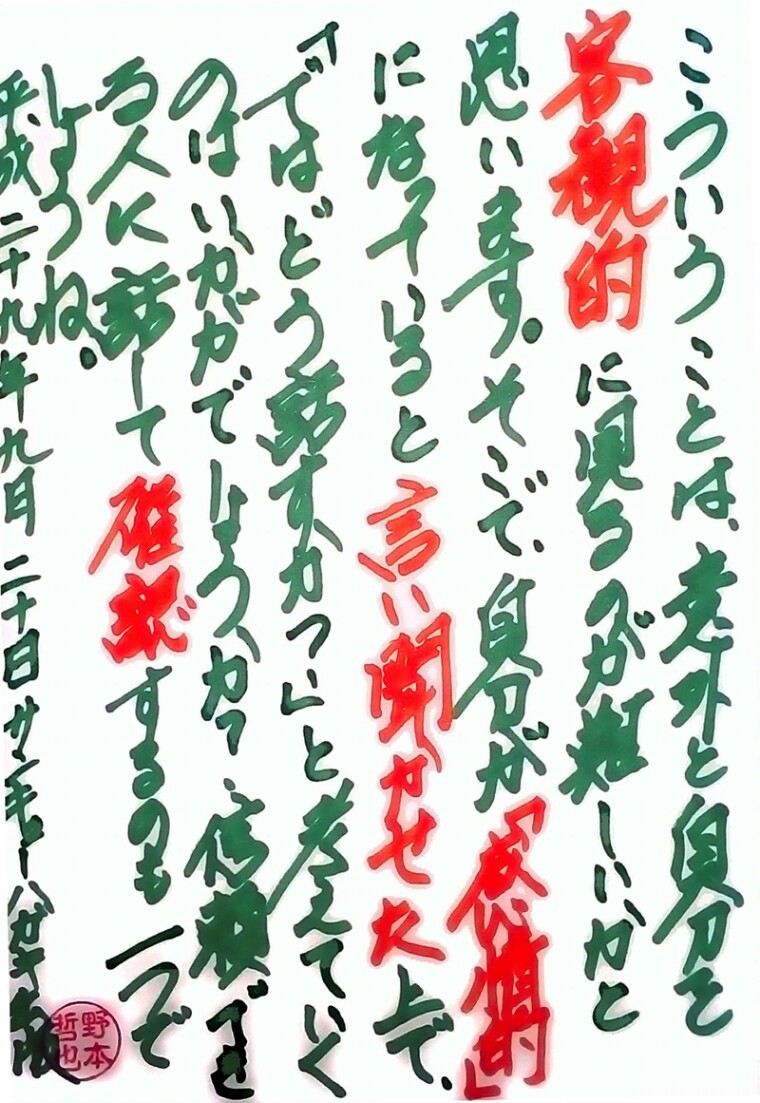 こういうことは、意外と自分を
客観的に見るのが難しいかと
思います。そこで、自分が「感情的」
になっていると言い聞かせた上で、
「ではどう話すか?」と考えていく
のはいかがでしょうか?信頼でき
る人に話して確認するのも一つで
しょうね。
平成二十九年九月二十日サンキューハガキ版
野本哲也